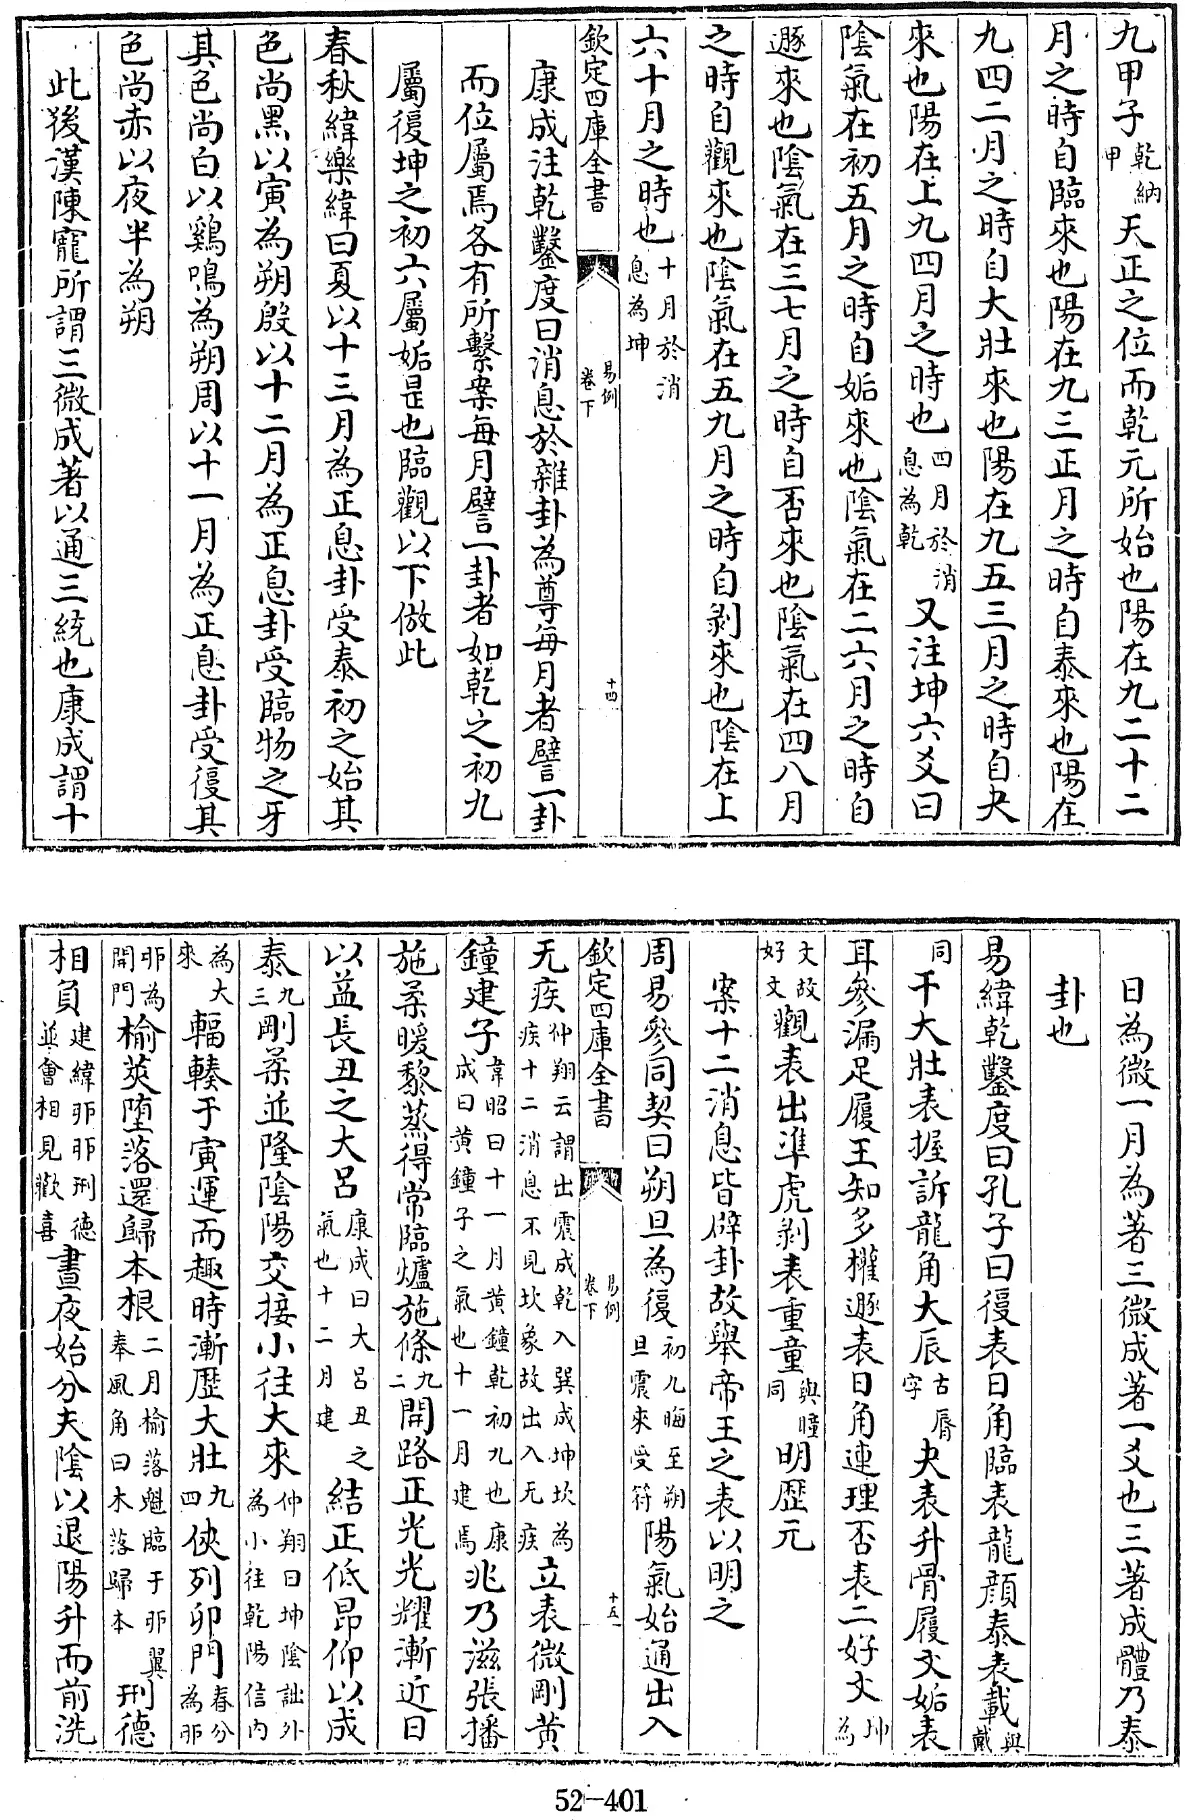 九甲子乾納甲天正之位而乾元所始也陽在九二十二
月之時自臨來也陽在九三正月之時自泰來也陽在
九四二月之時自大壯來也陽在九五三月之時自夬
來也陽在上九四月之時也四月於消息為乾又注坤六爻曰
陰氣在初五月之時自姤來也陰氣在二六月之時自
遯來也陰氣在三七月之時自否來也陰氣在四八月
之時自觀來也陰氣在五九月之時自剥來也陰在上
六十月之時也十月於消息為坤
欽定四庫全書 易例卷下 十四
康成注乾鑿度曰消息於雜卦為尊每月者譬一卦
而位屬焉各有所繫案每月譬一卦者如乾之初九
屬復坤之初六屬姤是也臨觀以下倣此
春秋緯樂緯曰夏以十三月為正息卦受泰初之始其
色尚黑以寅為朔殷以十二月為正息卦受臨物之牙
其色尚白以鷄鳴為朔周以十一月為正息卦受復其
色尚赤以夜半為朔
此後漢陳寵所謂三微成著以通三統也康成謂十
日為微一月為著三微成著一爻也三著成體乃泰
卦也
易緯乾鑿度曰孔子曰復表日角臨表龍顔泰表載與戴
同干大壯表握訴龍角大辰古脣字夬表升骨履文姤表
耳參漏足履王知多權遯表日角連理否表二好文坤為
文故好文觀表出準虎剥表重童與瞳同明歴元
案十二消息皆辟卦故舉帝王之表以明之
周易參同契曰朔旦為復初九晦至朔旦震來受符陽氣始通出入
欽定四庫全書 易例卷下 十五
无疾仲翔云謂出震成乾入巽成坤坎為疾十二消息不見坎象故出入无疾立表微剛黄
鐘建子韋昭曰十一月黄鐘乾初九也康成曰黄鐘子之氣也十一月建焉兆乃滋張播
施柔暖黎蒸得常臨爐施條九二開路正光光耀漸近日
以益長丑之大呂康成曰大呂丑之氣也十二月建結正低昂仰以成
泰九三剛柔並隆陰陽交接小往大來仲翔曰坤陰詘外為小往乾陽信内
為大來輻輳于寅運而趣時漸歴大壯九四俠列卯門春分為卯
卯為開門榆莢墮落還歸本根二月榆落魁臨于卯翼奉風角曰木落歸本刑德
相負建緯卯卯刑德並會相見歡喜晝夜始分夬陰以退陽升而前洗
52-401